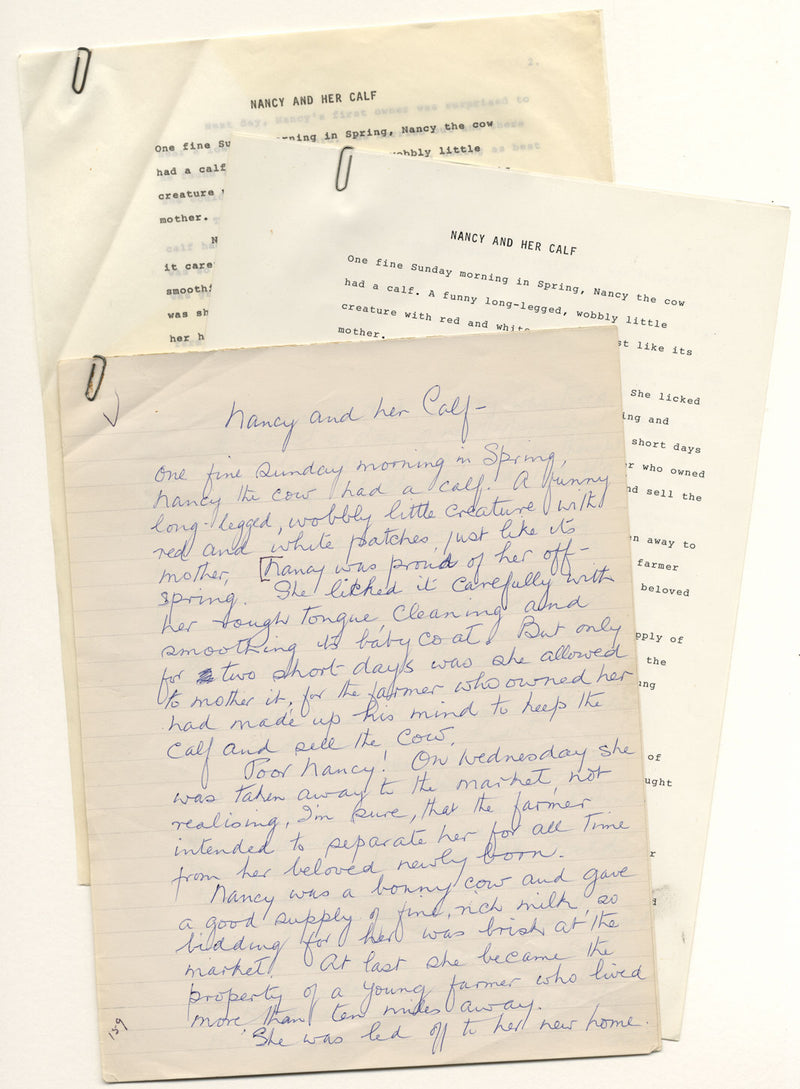 2.
NANCY AND HER CALF
Next day, Nancy's first owner was surprised to
One fine Su rning in Spring, Nancy the cow
had a calf wobbly little
as best
creature
mother.
N
calf ha
it care
smooth
was sh
her h
NANCY AND HER CALF
One fine Sunday morning in Spring, Nancy the cow
had a calf. A funny long-legged, wobbly little
creature with red and white st like its
mother.
She licked
ing and
short days
r who owned
nd sell the
en away to
farmer
beloved
pply of
the
ng
of
ught
Nancy and her Calf-
One fine Sunday morning in Spring,
Nancy the cow had a calf. A funny
long-legged, wobbly little creature with
red and white patches, just like its
mother. [Nancy was proud of her off-
spring. She licked it carefully with
her rough tongue, cleaning and
smoothing its baby coat. But only
for two short days was she allowed
to mother it, for the farmer who owned her
had made up his mind to keep the
calf and sell the cow.
Poor Nancy! On Wednesday she
was taken away to the market, not
realising, I'm sure, that the farmer
intended to separate her for all Time
from her beloved newly born.
Nancy was a bonny cow and gave
a good supply of fine, rich milk, so
bidding for her was brisk at the
market. At last she became the
property of a young farmer who lived
more than ten miles away.
She was led off to her new home.
159